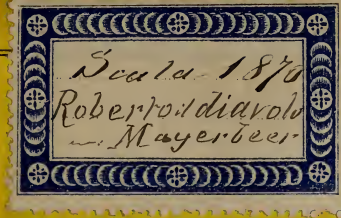 Scala 1870
Roberto il diavolo
Mayerbeer